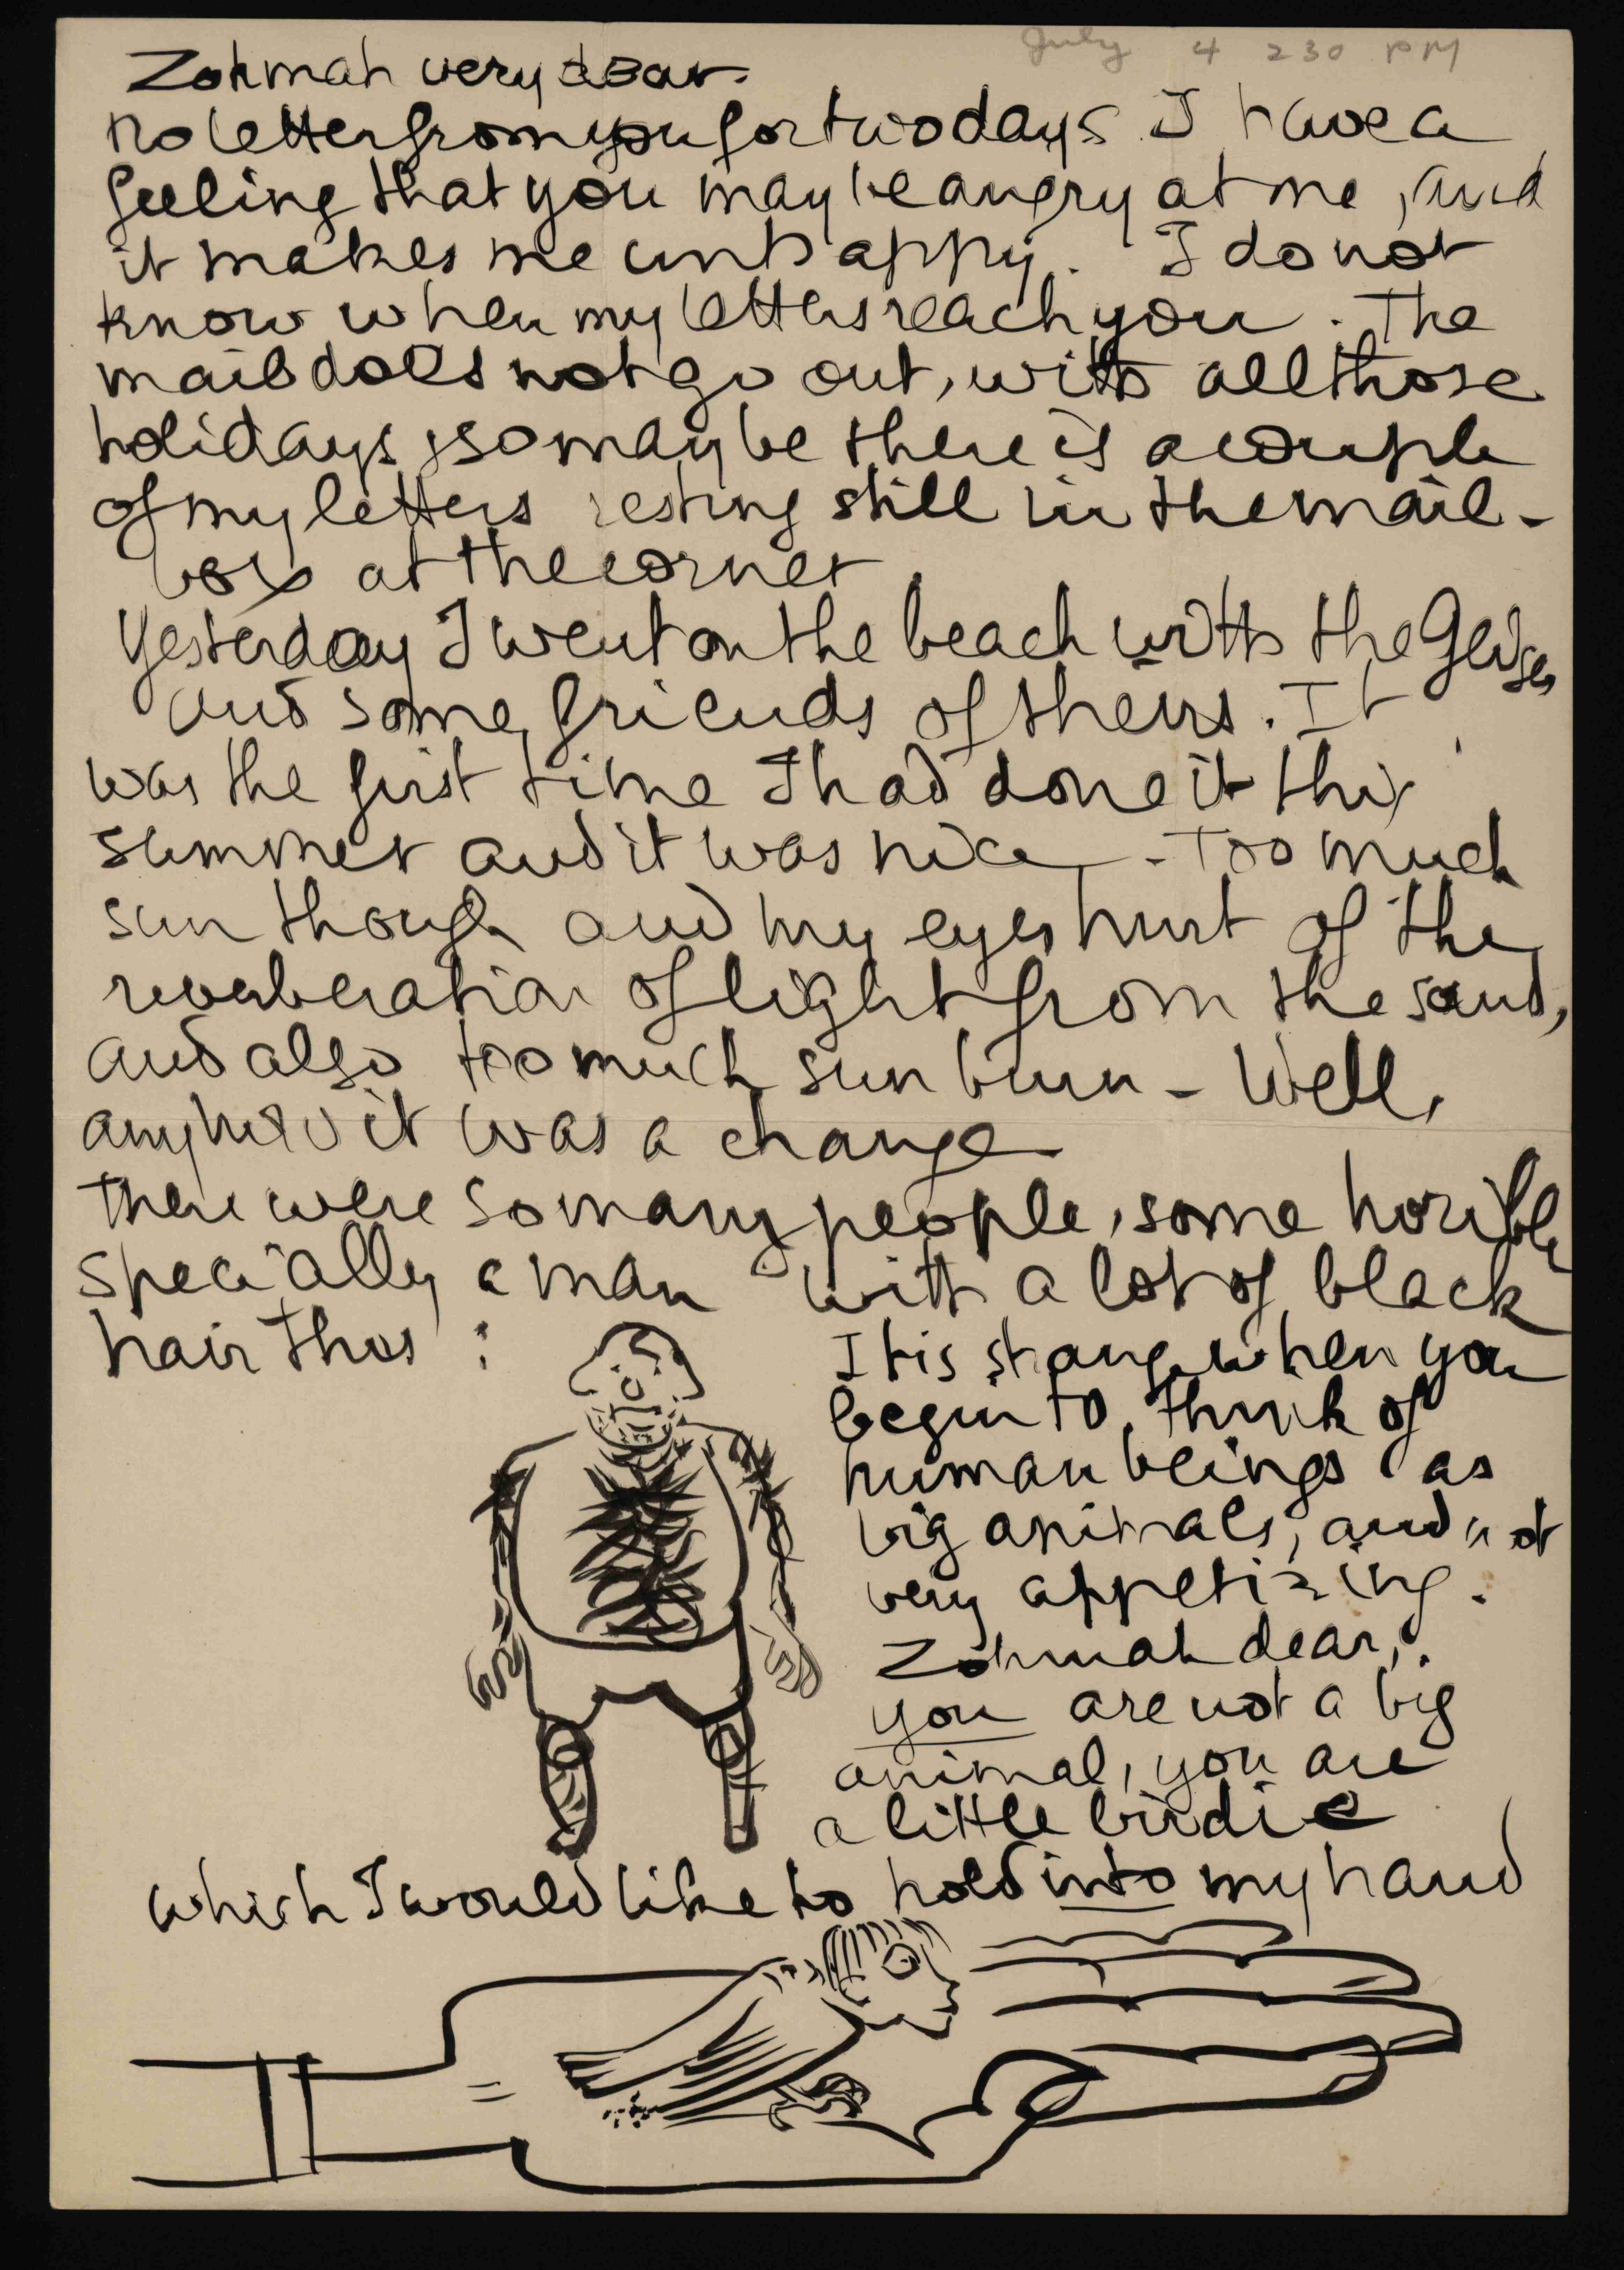 July 4 2 30 PM
Zohmah very dear.
No letter from you for two days I have a
feeling that you may be angry at me, and
it makes me unhappy. I do not
know when my letters reach you. The
mail does not go out, with all those
holidays, so maybe there is a couple
of my letters resting still in the mail-
box at the corner
Yesterday I went on the beach with the
and some friends of theirs. It
was the first time I had done it this
summer and it was nice - Too much
sun though and my eyes hurt of the
reverberation of light from the sand,
and also too much sun burn - Well,
anyhow it was a change
There were so many people, some horible
specially a man with a lot of black
hair thus :
It is strange when you
begin to think of
human beings as
big animals, and not
very appetizing.
Zohmah dear,
you are not a big
animal, you are
a little birdie
which I would like to hold into my hand